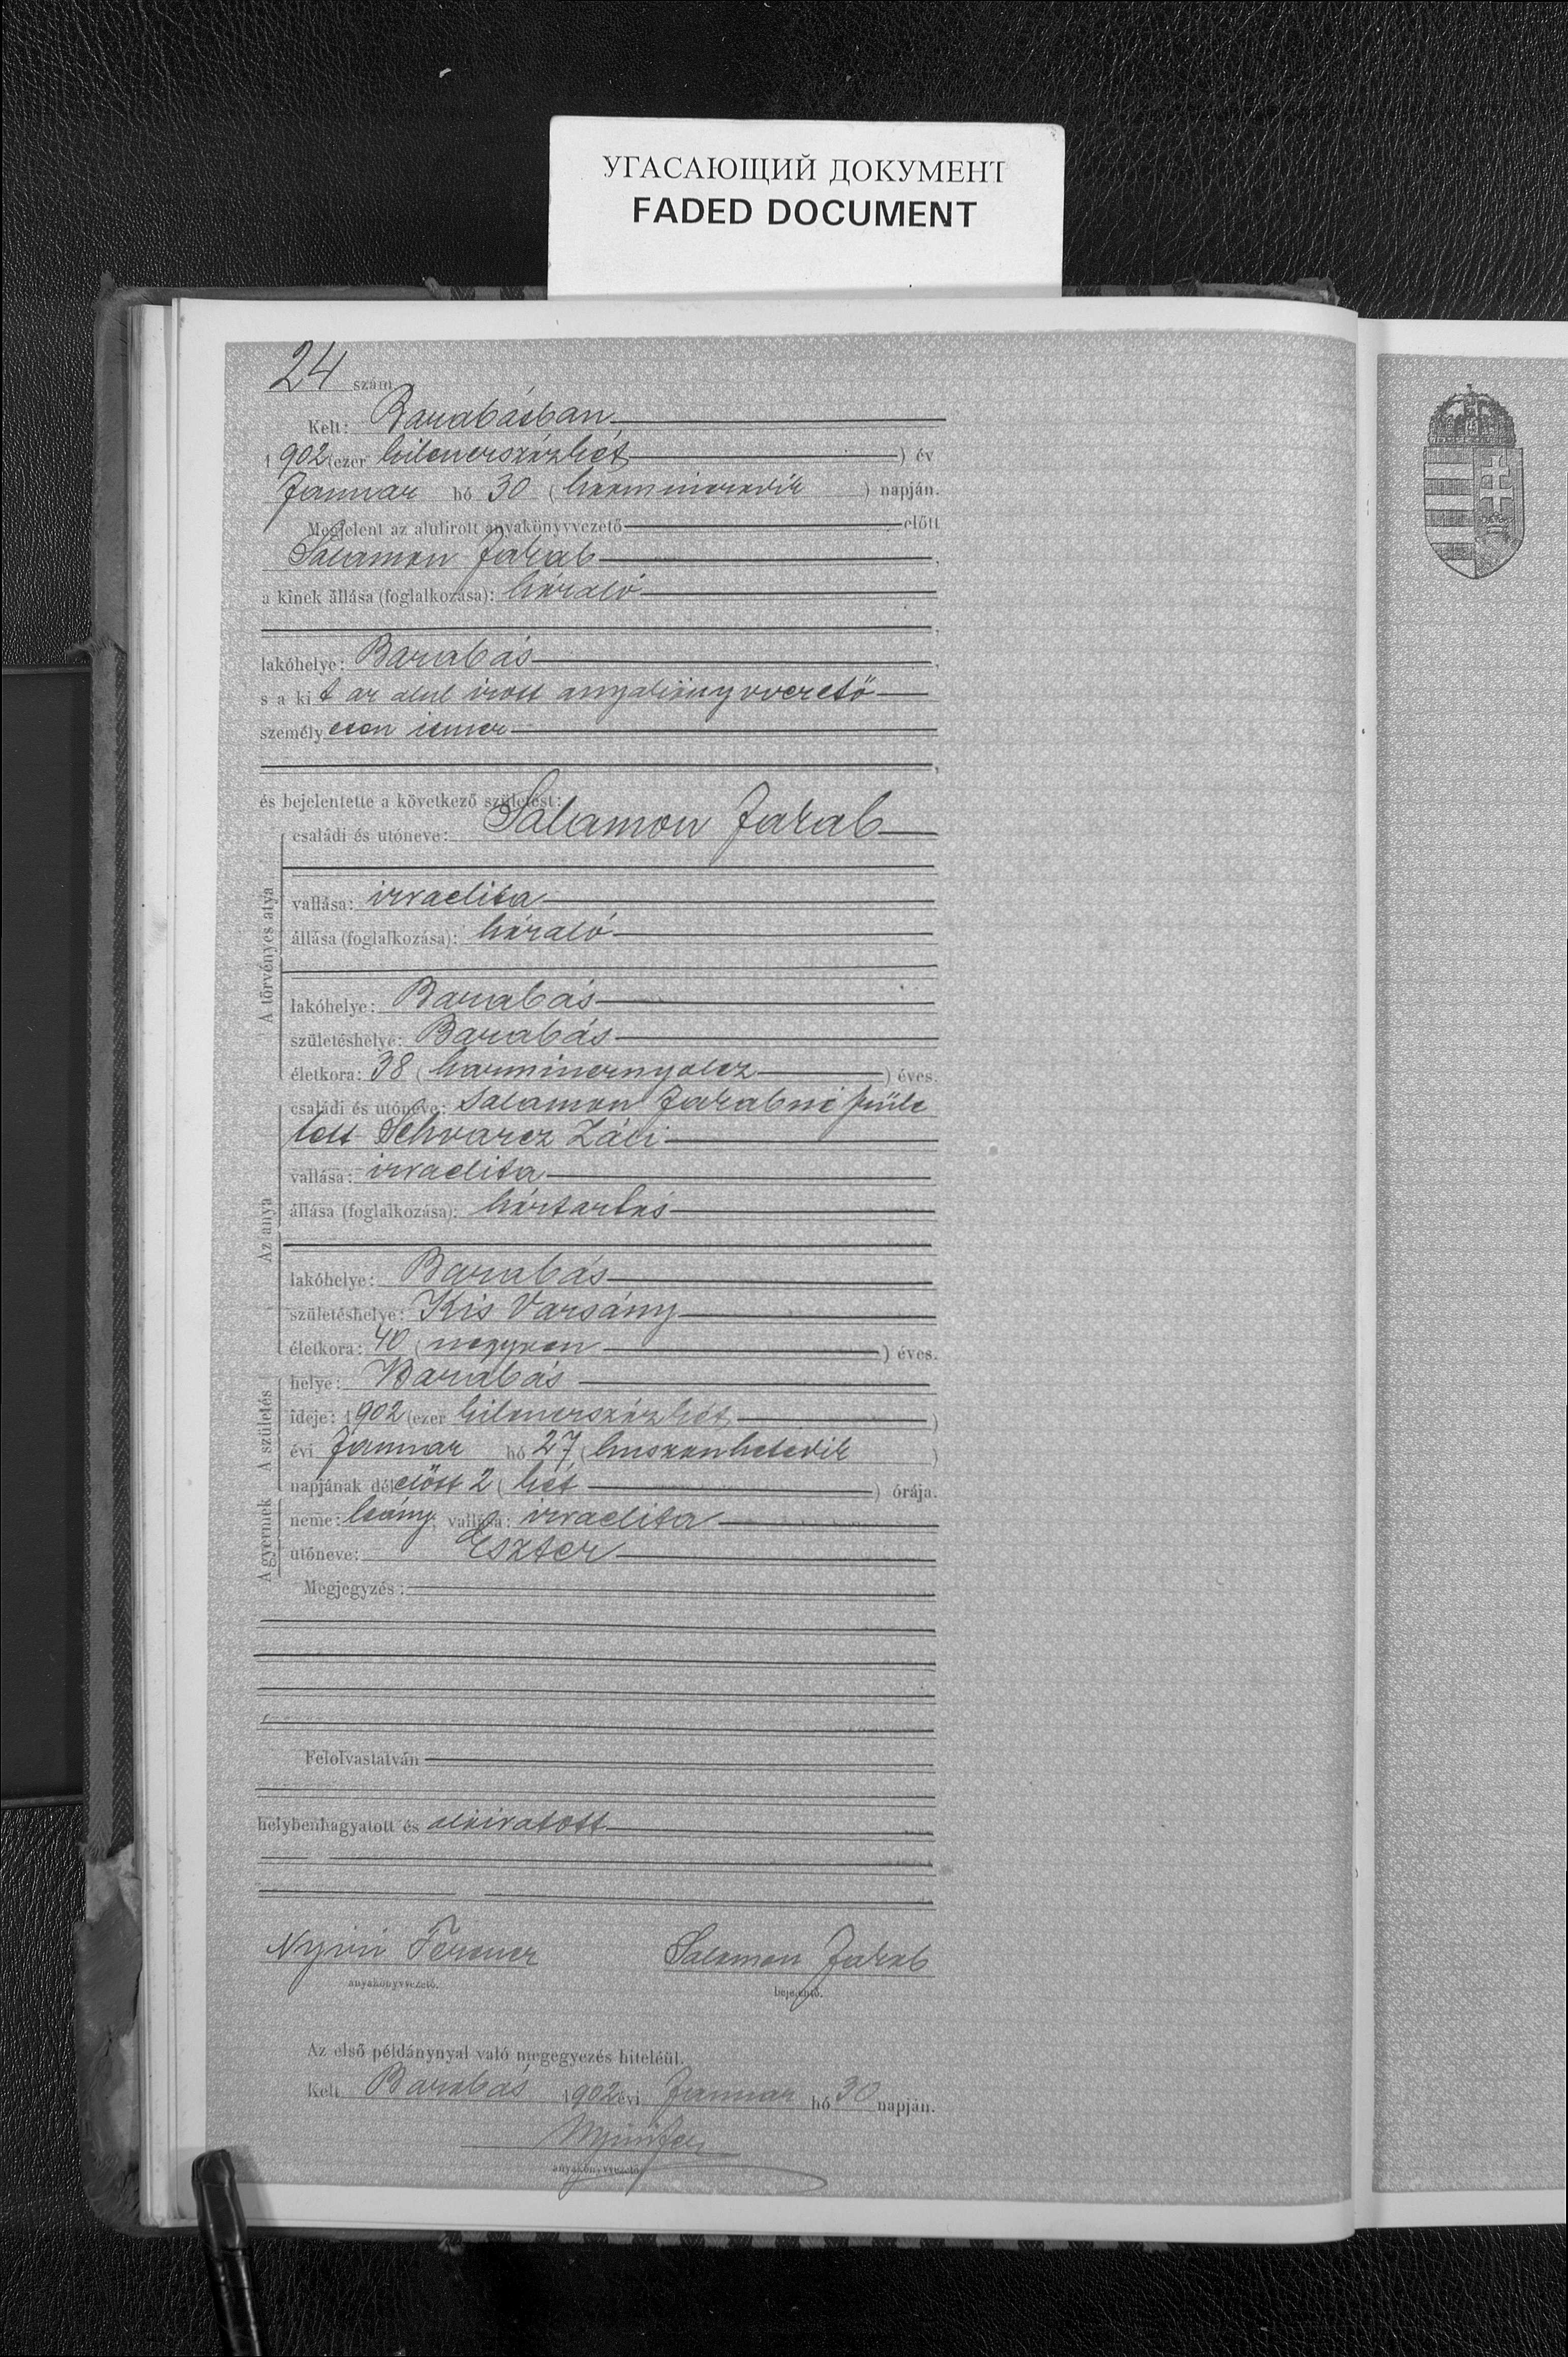 УГАСАЮЩИЙ ДОКУМЕНТ
FADED DOCUMENT
24 szám
Kelt: Barabásban
1902 (ezer kilenczszázkét) év
Januar hó 30 (harminczadik) napján.
Megjelent az alulirott anyakönyvvezető előtt
Salamon Jakab,
a kinek állása (foglalkozása): házaló
lakóhelye: Barabás,
s a kit az alul irott anyakönyvvezető
személyesen ismer
és bejelentette a következő születést:
A törvényes atya
családi és utóneve: Salamon Jakab
vallása: izraelita
állása (foglalkozása): házaló
lakóhelye: Barabás
születéshelye: Barabás
életkora: 38 (harmincznyolcz) éves.
Az anya
családi és utóneve: Salamon Jakabné szüle
tett Schvarcz Záli
vallása: izraelita
állása (foglalkozása): háztartás
lakóhelye: Barabás
születéshelye: Kis Varsány
életkora: 40 (negyven) éves.
A születés
helye: Barabás
ideje: 1902 (ezer kilenczszázkét)
évi Januar hó 27 (huszonhetedik)
napjának délelőtt 2 (két) órája.
A gyermek
neme: leány; vallása: izraelita
utóneve: Eszter
Megjegyzés:
Felolvastatván
helybenhagyatott és aláiratott
Nyiri Ferencz Salamon Jakab
anyakönyvvezető. bejelentő.
Az első példánynyal való megegyezés hiteléül.
Kelt Barabás 1902 évi Januar hó 30 napján.
anyakönyvvezető.